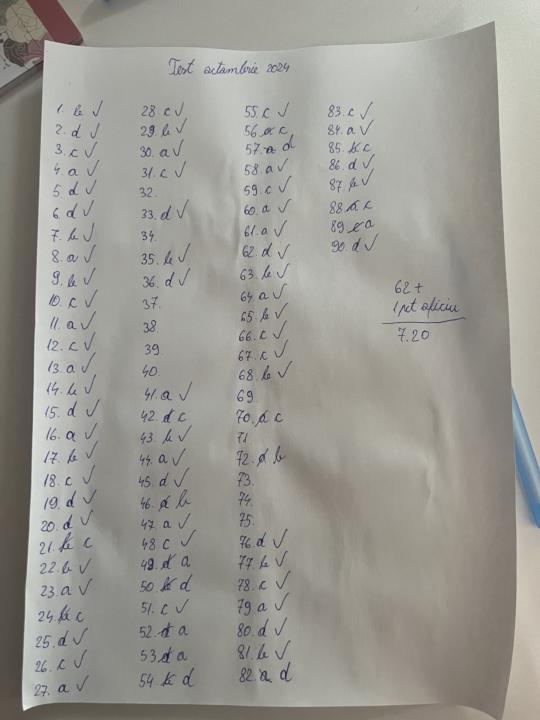 Test octombrie 2024
1. b ✓
2. d ✓
3. c ✓
4. a ✓
5. d ✓
6. d ✓
7. b ✓
8. a ✓
9. b ✓
10. c ✓
11. a ✓
12. c ✓
13. a ✓
14. b ✓
15. d ✓
16. a ✓
17. b ✓
18. c ✓
19. d ✓
20. d ✓
21. b c
22. b ✓
23. a ✓
24. b c
25. d ✓
26. c ✓
27. a ✓
28 c ✓
29 b ✓
30. a ✓
31. c ✓
32.
33. d ✓
34.
35. b ✓
36. d ✓
37.
38.
39.
40.
41. a ✓
42. d c
43. b ✓
44. a ✓
45. d ✓
46. d b
47. a ✓
48. c ✓
49. d a
50. b d
51. c ✓
52. d a
53. d a
54. b d
55. c ✓
56. a c
57. a d
58. a ✓
59. c ✓
60. a ✓
61. a ✓
62. d ✓
63. b ✓
64. a ✓
65. b ✓
66. c ✓
67. c ✓
68. b ✓
69
70. a c
71
72. d b
73.
74.
75.
76. d ✓
77. b ✓
78. c ✓
79. a ✓
80. d ✓
81. b ✓
82. a d
83. c ✓
84. a ✓
85. b c
86. d ✓
87. b ✓
88. a c
89. c a
90. d ✓
62 +
1 pct oficiu
7.20